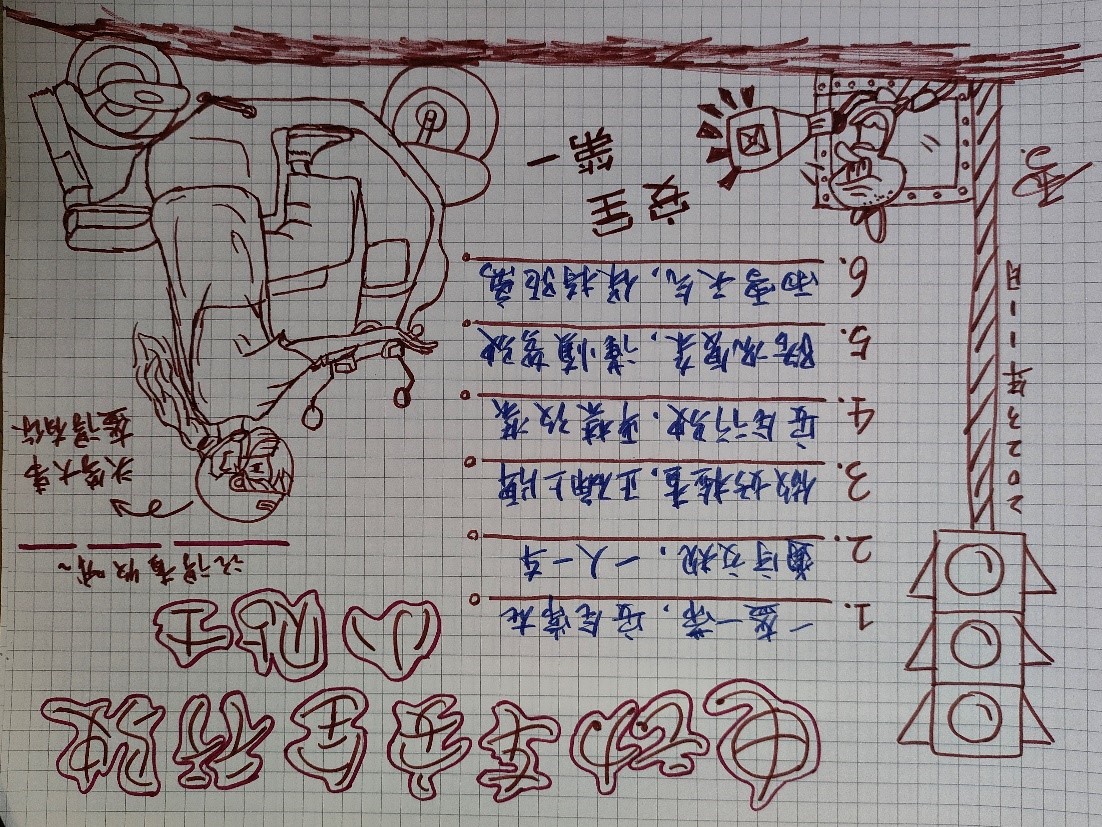 电动车安全行驶
小贴士
记得查收哦~
1. 一盔一带，安全常在。
2. 遵守交规，一人一车。
3. 做好检查，正确上牌。
4. 安全行驶，严禁改装。
5. 路况复杂，谨慎驾驶。
6. 雨雪天气，保持距离。
头等大事
盔得有你
2023年11月
雪
安全
第一